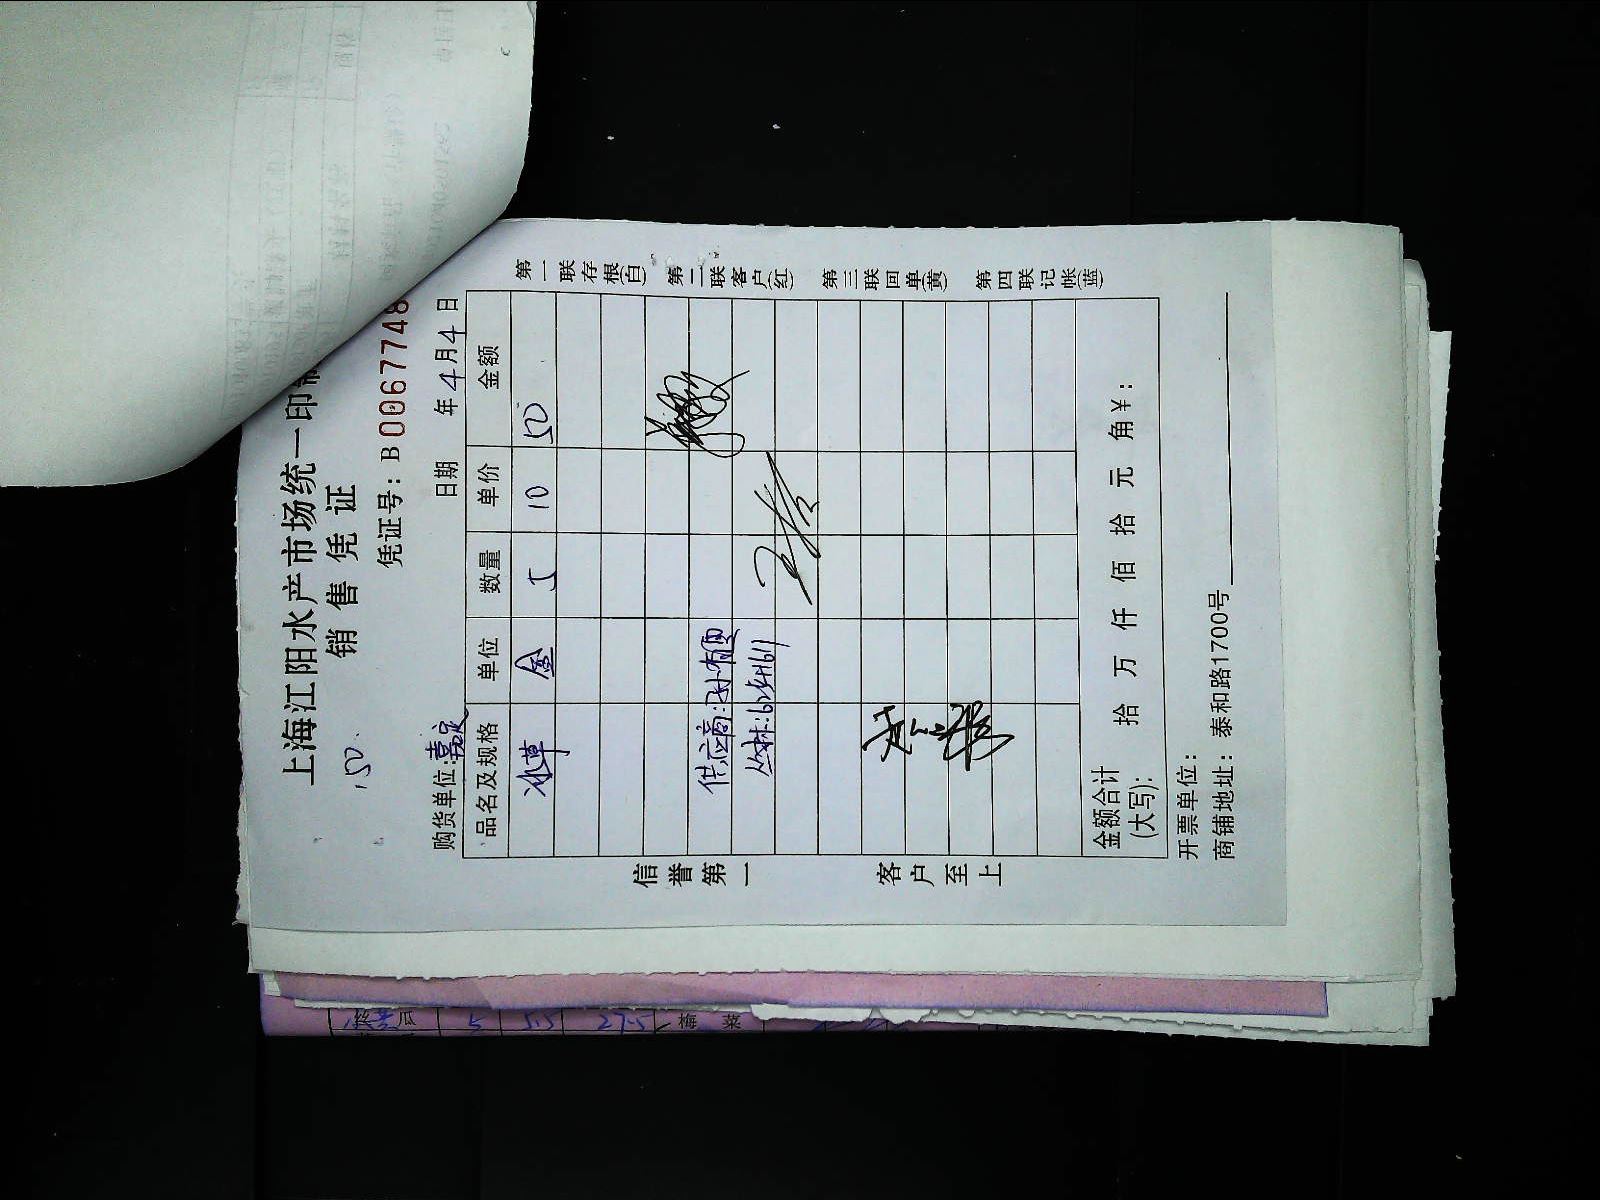 上海江阳水产市场统一印制
销售凭证
150
凭证号: B0067748
购货单位: 嘉定
日期 年4月4日
品名及规格 单位 数量 单价 金额
冰草 盒 5 10 50
供应商:
金额合计
(大写): 拾 万 仟 佰 拾 元 角¥:
开票单位:
商铺地址: 泰和路1700号
信誉第一
客户至上
第一联存根(白)
第二联客户(红)
第三联回单(黄)
第四联记帐(蓝)
瓜 5 5.5 27.5 梅菜